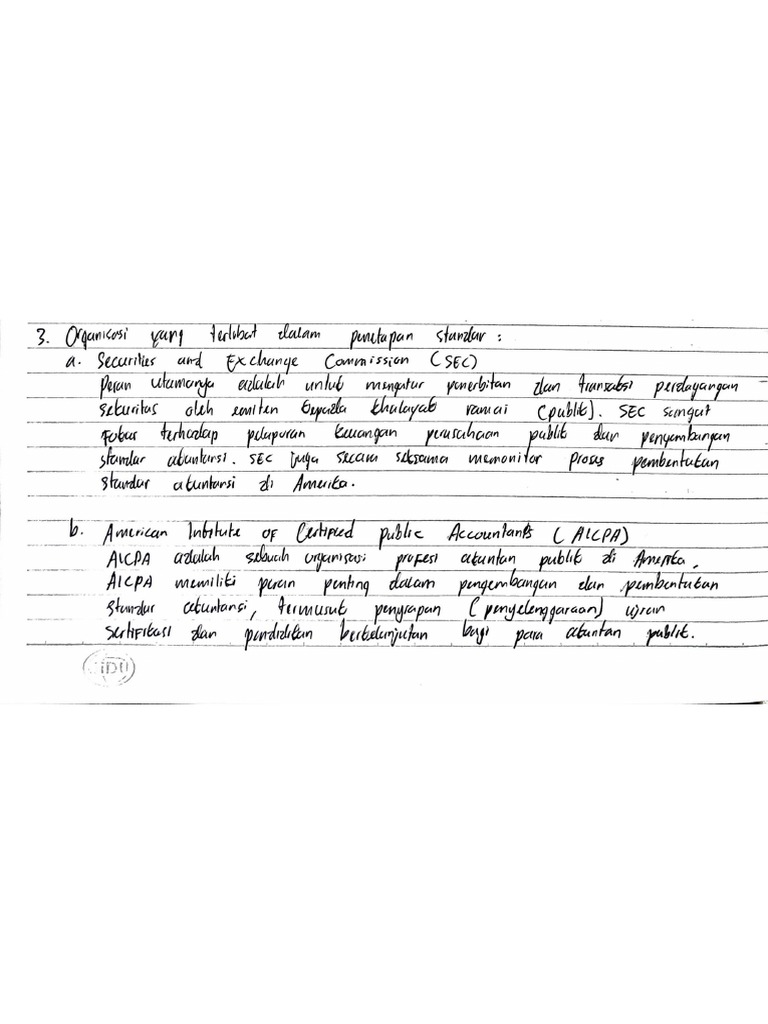 3. Organisasi yang terlibat dalam penetapan standar :
a. Securities and Exchange Commission (SEC)
Peran utamanya adalah untuk mengatur penerbitan dan transaksi perdagangan
sekuritas oleh emiten kepada khalayak ramai (publik). SEC sangat
fokus terhadap pelaporan keuangan perusahaan publik dan pengembangan
standar akuntansi. SEC juga secara seksama memonitor proses pembentukan
standar akuntansi di Amerika.
b. American Institute of Certified public Accountants (AICPA)
AICPA adalah sebuah organisasi profesi akuntan publik di Amerika.
AICPA memiliki peran penting dalam pengembangan dan pembentukan
standar akuntansi, termasuk penyiapan (penyelenggaraan) ujian
sertifikasi dan pendidikan berkelanjutan bagi para akuntan publik.
SIDU